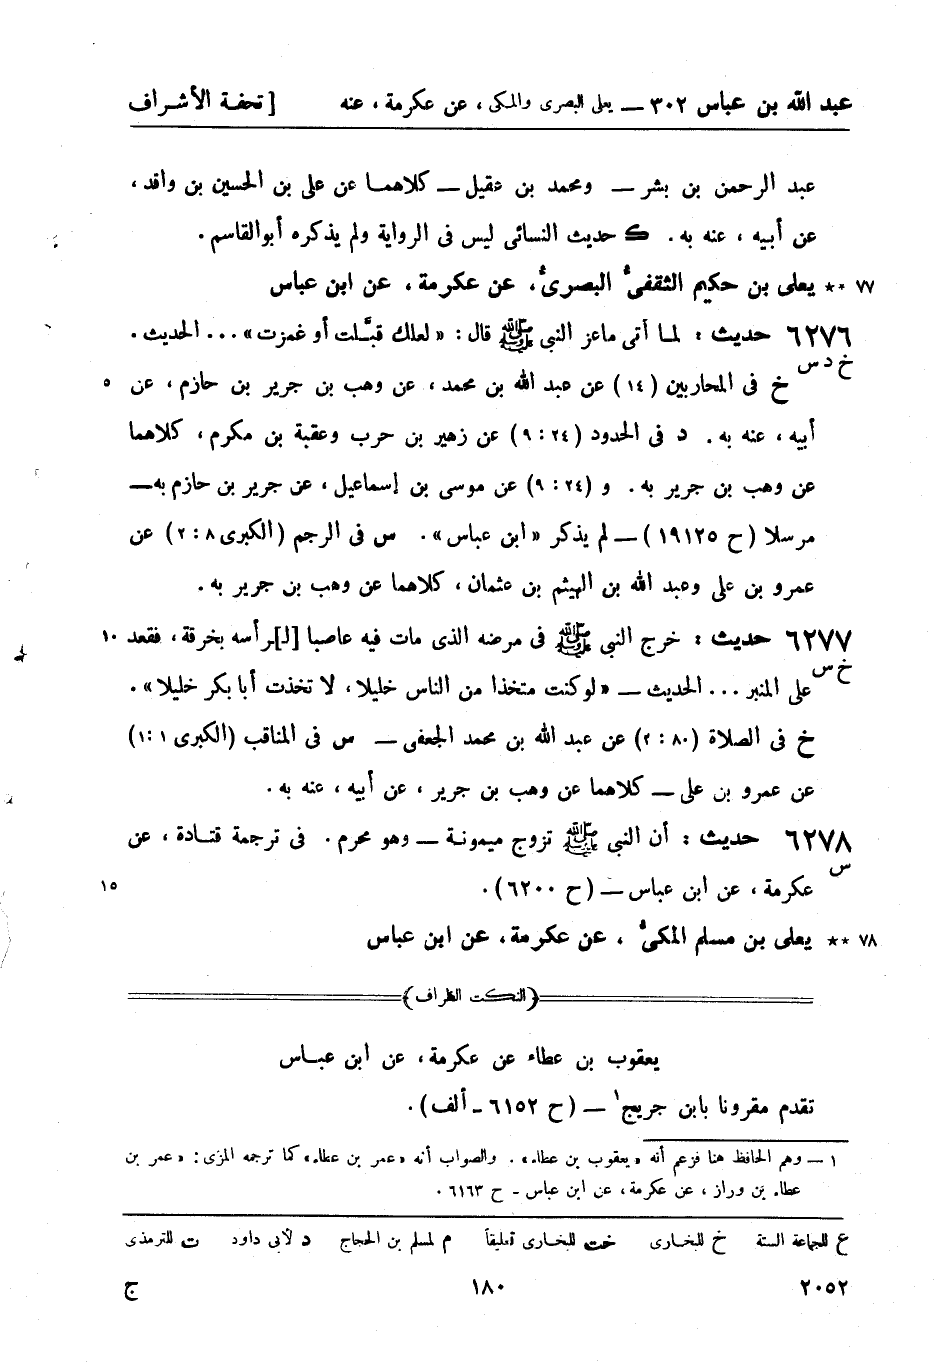 عبد الله بن عباس ٣٠٢ — يعلى البصرى والمكى ، عن عكرمة ، عنه [ تحفة الأشراف
عبد الرحمن بن بشر — ومحمد بن عقيل — كلاهما عن على بن الحسين بن واقد ،
عن أبيه ، عنه به . ك حديث النسائى ليس فى الرواية ولم يذكره أبوالقاسم .
٧٧ ** يعلى بن حكيم الثقفى البصرى ، عن عكرمة ، عن ابن عباس
٦٢٧٦ حديث : لما أتى ماعز النبي ﷺ قال : « لعلك قبَّلت أو غمزت » ... الحديث .
خ د س
خ فى المحاربين ( ١٤ ) عن عبد الله بن محمد ، عن وهب بن جرير بن حازم ، عن ٥
أبيه ، عنه به . د فى الحدود ( ٢٤ : ٩ ) عن زهير بن حرب وعقبة بن مكرم ، كلاهما
عن وهب بن جرير به . و ( ٢٤ : ٩ ) عن موسى بن إسماعيل ، عن جرير بن حازم به —
مرسلا ( ح ١٩١٢٥ ) — لم يذكر « ابن عباس » . س فى الرجم ( الكبرى ٨ : ٢ ) عن
عمرو بن على وعبد الله بن الهيثم بن عثمان ، كلاهما عن وهب بن جرير به .
٦٢٧٧ حديث : خرج النبي ﷺ فى مرضه الذى مات فيه عاصبا [لـ]رأسه بخرقة ، فقعد ١٠
خ س
على المنبر ... الحديث — « لوكنت متخذا من الناس خليلا ، لا تخذت أبا بكر خليلا » .
خ فى الصلاة ( ٨٠ : ٢ ) عن عبد الله بن محمد الجعفى — س فى المناقب ( الكبرى ١ : ١ )
عن عمرو بن على — كلاهما عن وهب بن جرير ، عن أبيه ، عنه به .
٦٢٧٨ حديث : أن النبي ﷺ تزوج ميمونة — وهو محرم . فى ترجمة قتادة ، عن
س
عكرمة ، عن ابن عباس — ( ح ٦٢٠٠ ) . ١٥
٧٨ ** يعلى بن مسلم المكى ، عن عكرمة ، عن ابن عباس
( النكت الظراف )
يعقوب بن عطاء عن عكرمة ، عن ابن عباس
تقدم مقرونا بابن جريج ١ — ( ح ٦١٥٢ - ألف ) .
١ — وهم الحافظ هنا فزعم أنه « يعقوب بن عطاء » . والصواب أنه « عمر بن عطاء » كما ترجمه المزى : « عمر بن
عطاء بن وراز ، عن عكرمة ، عن ابن عباس - ح ٦١٦٣ .
ع للجماعة الستة خ للبخارى خت للبخارى تعليقاً م لمسلم بن الحجاج د لأبى داود ت للترمذى
٢٠٥٢ ١٨٠ ج